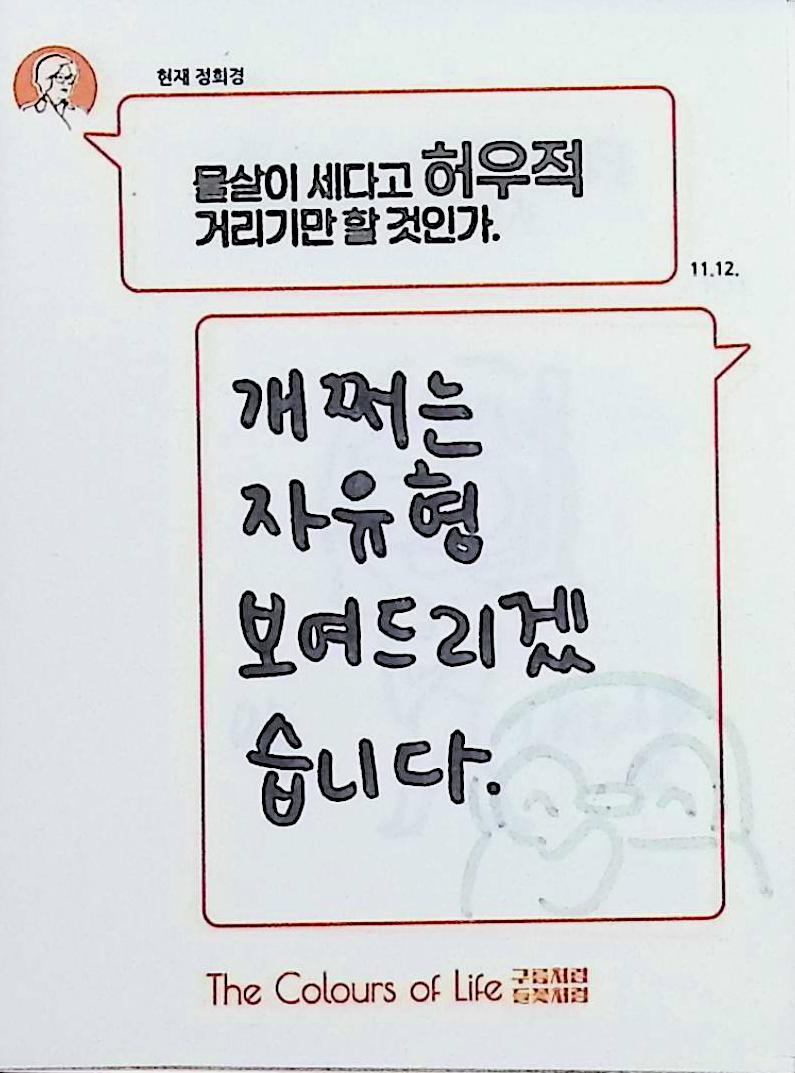 현재 정희경
물살이 세다고 허우적
거리기만 할 것인가.
11.12.
개쩌는
자유형
보여드리겠
습니다.
The Colours of Life 구름처럼
들꽃처럼